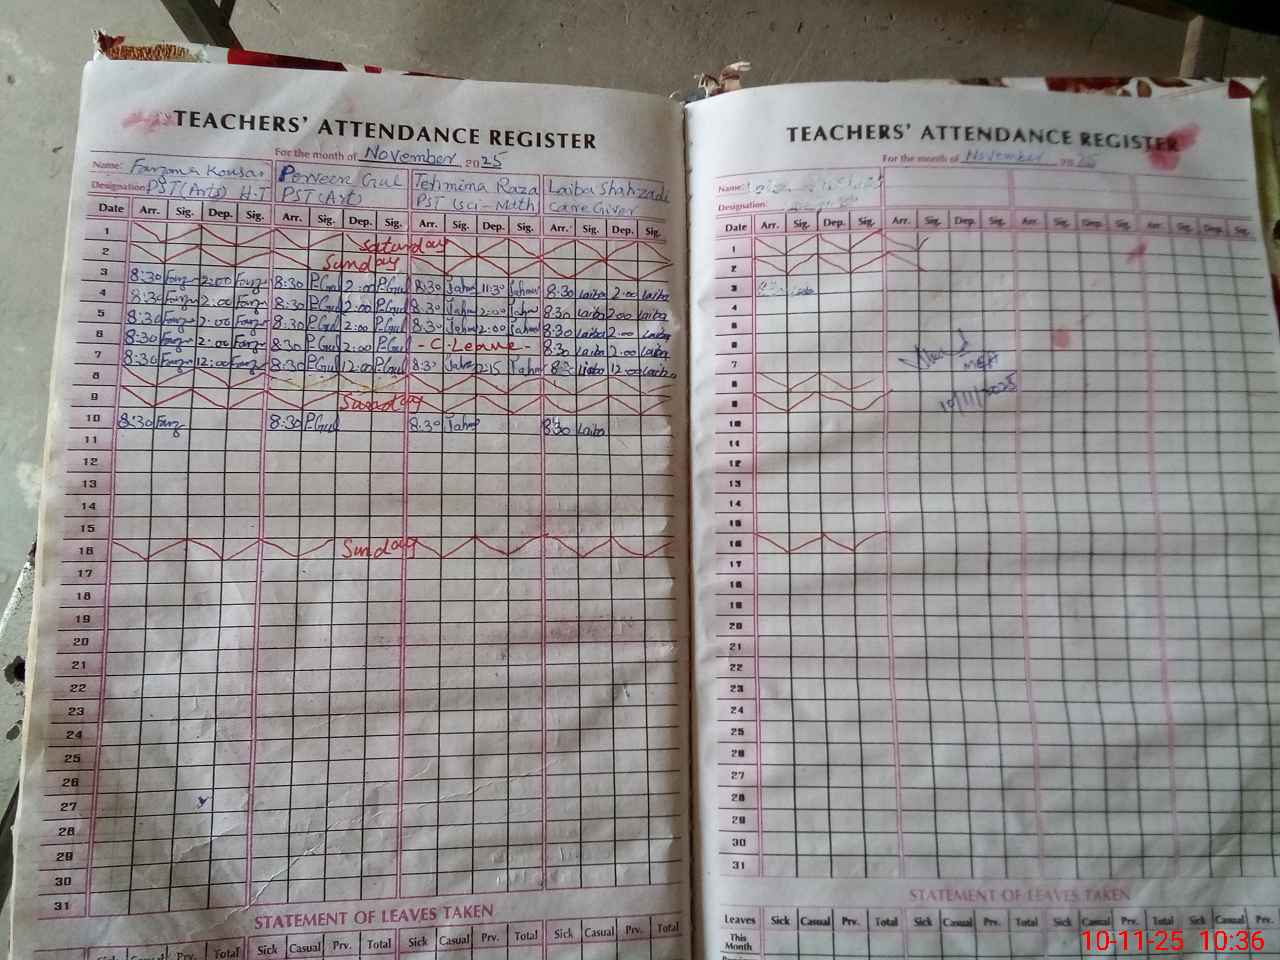 TEACHERS' ATTENDANCE REGISTER
For the month of November 2025
Name: Farzana Kousar Perveen Gul Tehmina Raza Laiba Shahzadi
Designation PST (Arts) H.T PST (Art) PST (Sci-Math) Care Giver
Date Arr. Sig. Dep. Sig. Arr. Sig. Dep. Sig. Arr. Sig. Dep. Sig. Arr. Sig. Dep. Sig.
1 Saturday
2 Sunday
3 8:30 Farz 2:00 Farz 8:30 P.Gul 2:00 P.Gul 8:30 11:30 8:30 Laiba 2:00 Laiba
4 8:30 Farz 2:00 Farz 8:30 P.Gul 2:00 P.Gul 8:30 2:00 8:30 Laiba 2:00 Laiba
5 8:30 Farz 2:00 Farz 8:30 P.Gul 2:00 P.Gul 8:30 2:00 8:30 Laiba 2:00 Laiba
6 8:30 Farz 2:00 Farz 8:30 P.Gul 2:00 P.Gul - C-Leave - 8:30 Laiba 2:00 Laiba
7 8:30 Farz 12:00 Farz 8:30 P.Gul 12:00 P.Gul 8:30 12:15 8:30 Laiba 12:00 Laiba
8
9 Sunday
10 8:30 Farz 8:30 P.Gul 8:30 8:30 Laiba
11
12
13
14
15
16 Sunday
17
18
19
20
21
22
23
24
25
26
27
28
29
30
31
STATEMENT OF LEAVES TAKEN
Sick Casual Prv. Total Sick Casual Prv. Total Sick Casual Prv. Total
TEACHERS' ATTENDANCE REGISTER
For the month of November 2025
Name:
Designation:
Date Arr. Sig. Dep. Sig. Arr. Sig. Dep. Sig. Arr. Sig. Dep. Sig. Arr. Sig. Dep. Sig.
1
2
3
4
5
6
7 MEA
8
9 10/11/2025
10
11
12
13
14
15
16
17
18
19
20
21
22
23
24
25
26
27
28
29
30
31
STATEMENT OF LEAVES TAKEN
Leaves Sick Casual Prv. Total Sick Casual Prv. Total Sick Casual Prv. Total Sick Casual Prv.
This
Month
10-11-25 10:36